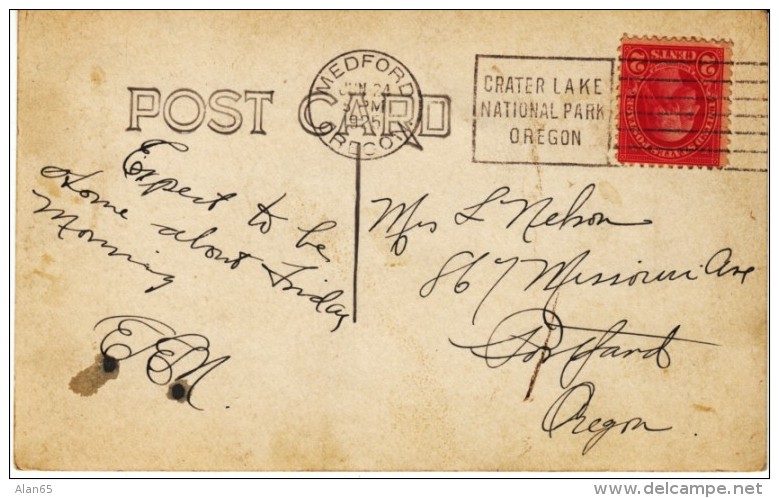 POST CARD
MEDFORD
JUN 24
3 PM
1925
OREGON
CRATER LAKE
NATIONAL PARK
OREGON
2 CENTS 2
Expect to be
Home about Friday
Morning
EEN.
Mrs L Nelson
867 Missouri Ave
Portland
Oregon.
Alan65
delcampe.net